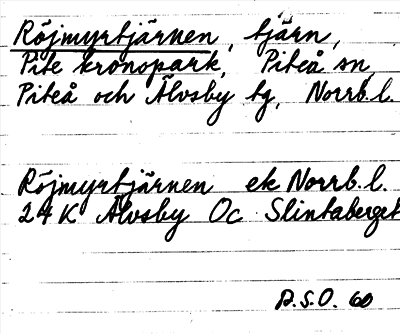 Röjmyrtjärnen, tjärn,
Pite kronopark, Piteå sn,
Piteå och Älvsby tg, Norrb.l.
Röjmyrtjärnen ek Norrb.l.
24 K Älvsby Oc Slintaberget
D.S.O. 60